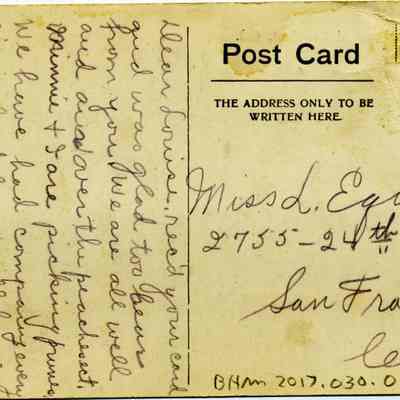 Dear Louise, rec'd your card
and was glad too hear
from you. We are all well
and over the peaches ect.
Minnie + I are picking prunes
We have had company every
Post Card
THE ADDRESS ONLY TO BE
WRITTEN HERE.
Miss L. Eg
2755-24th
San Fra
BHM 2017.030.0